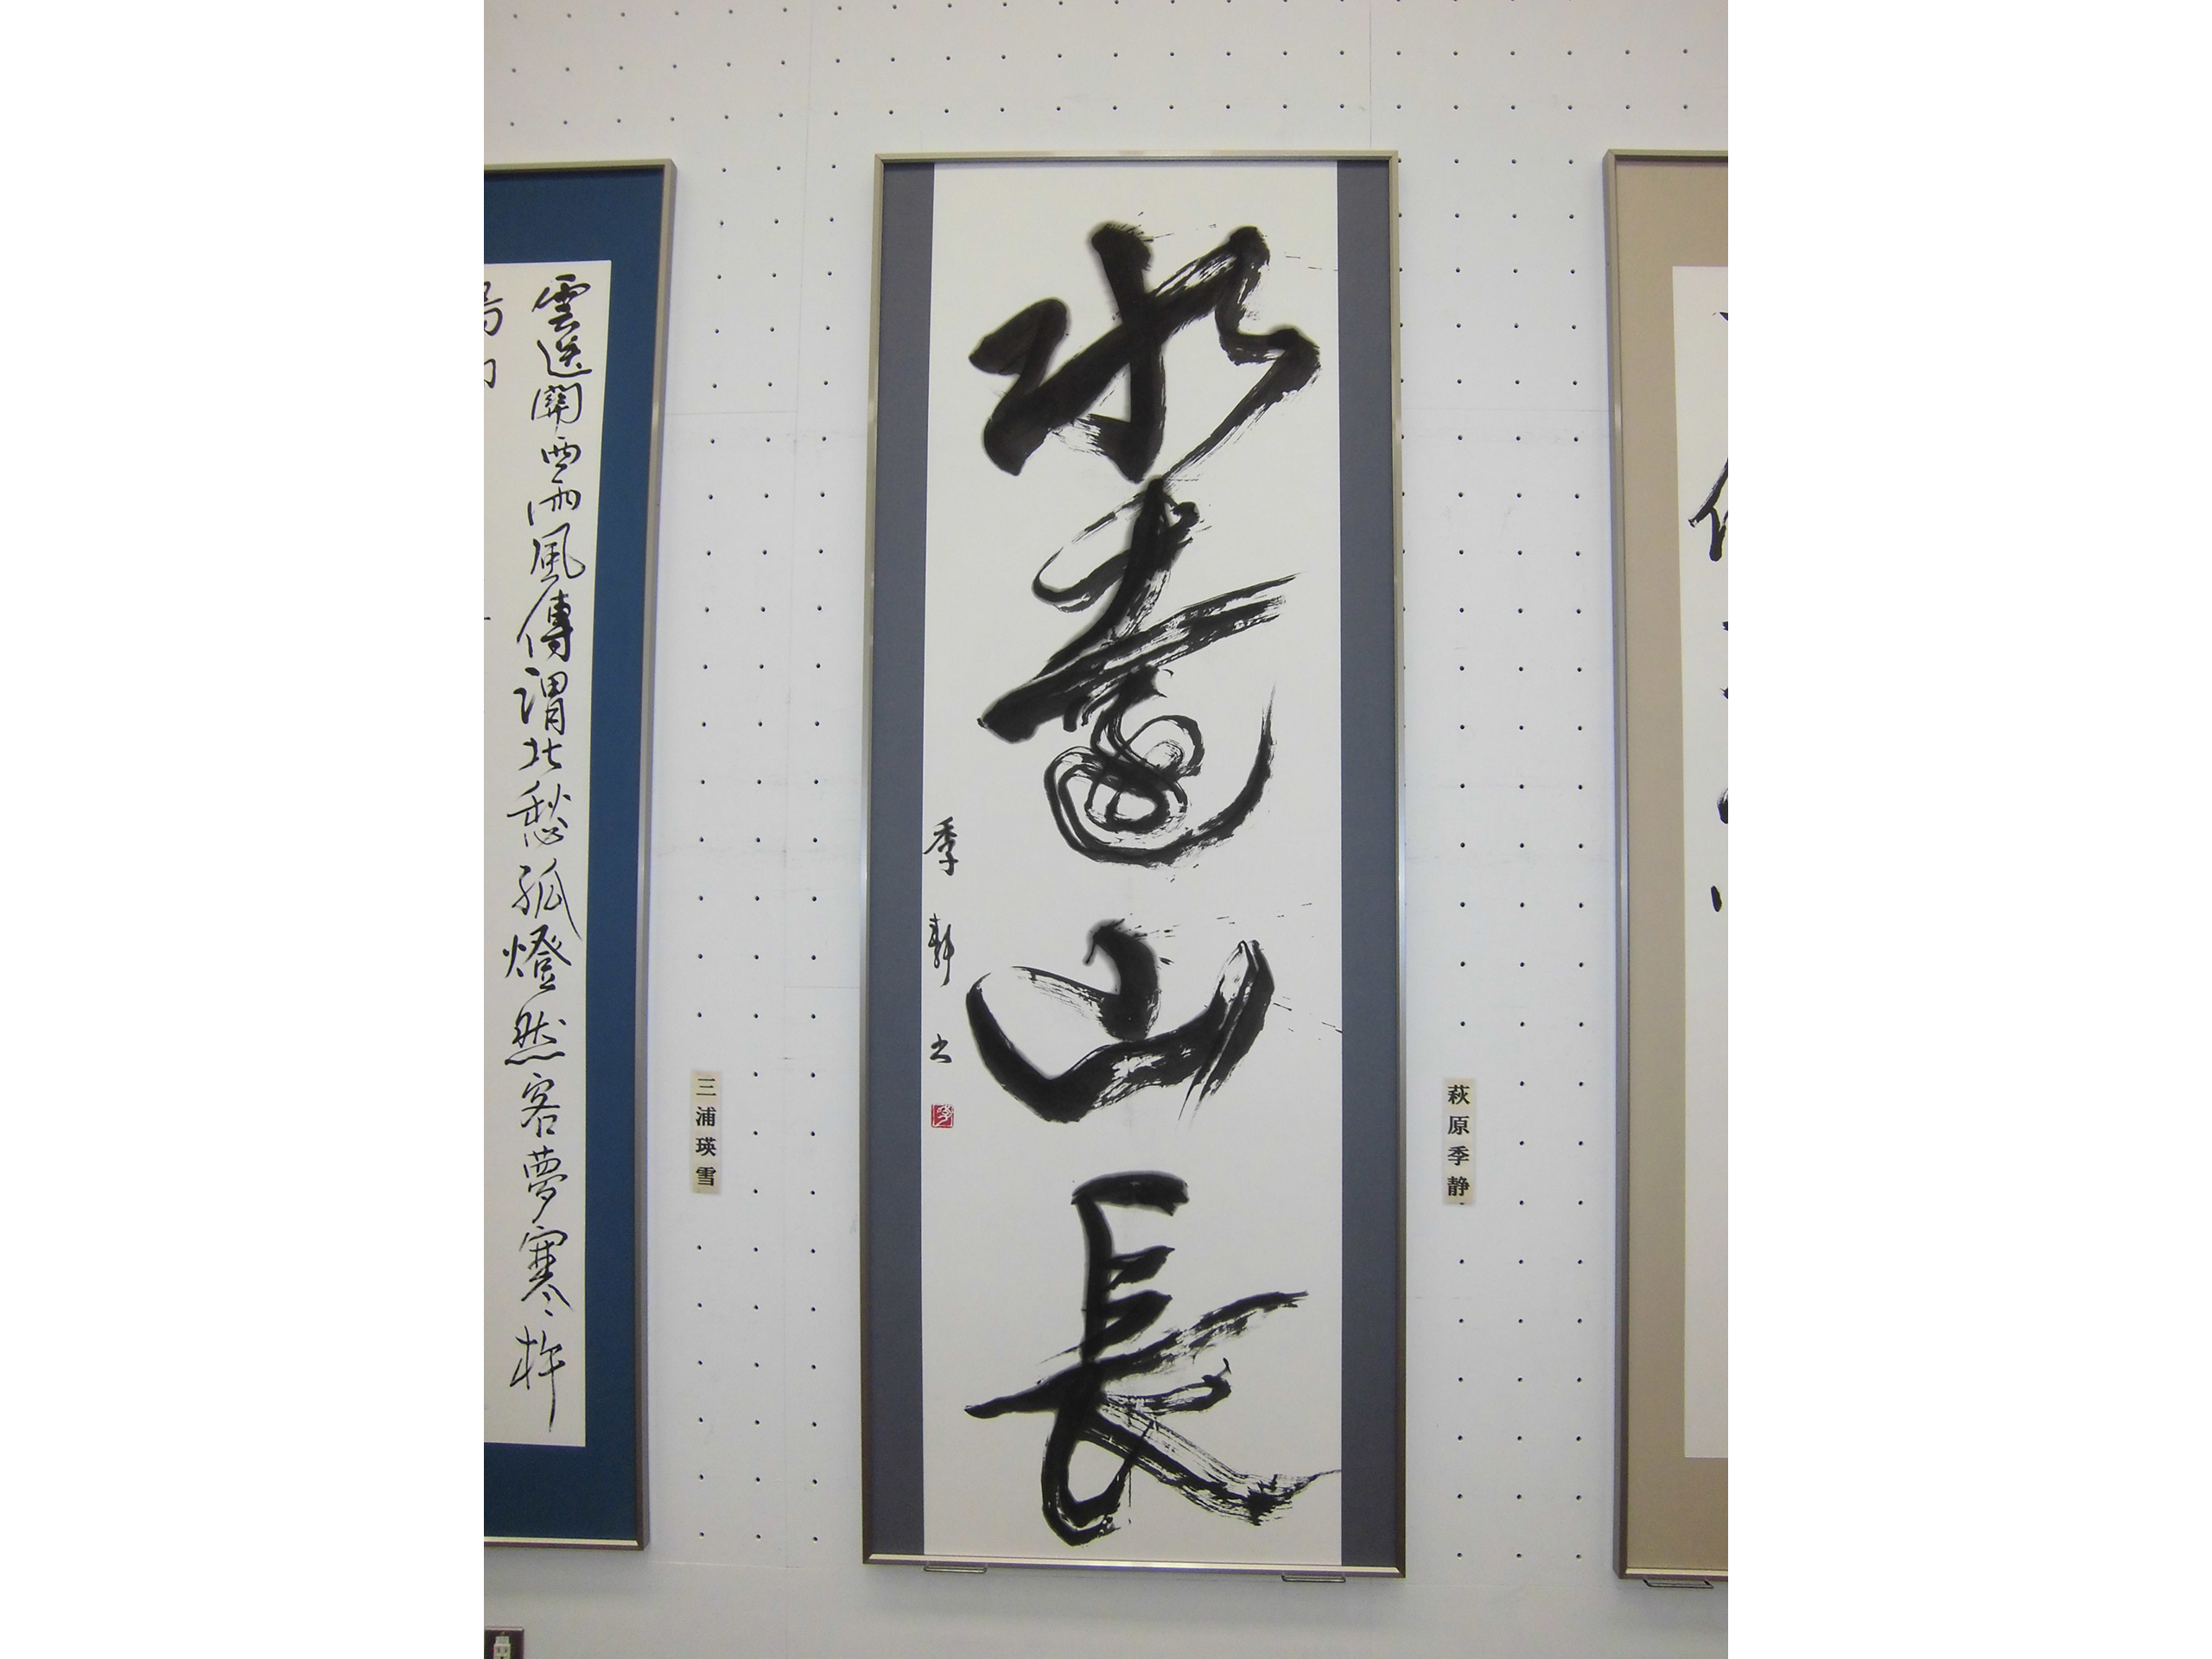 水壽山長
季静书
萩原季静
雲送關西雨風傳渭北愁孤燈然客夢寒杵
三浦瑛雪